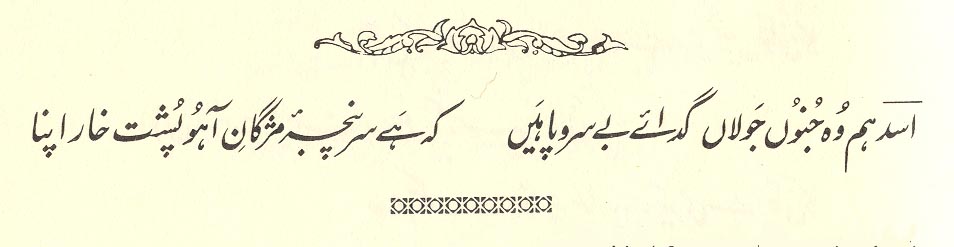 اسدؔ ہم وُہ جُنُوں جَولاں گدائے بے سروپا ہَیں کہ ہَے سر پنجۂ مژگانِ آہُو پُشت خار اپنا